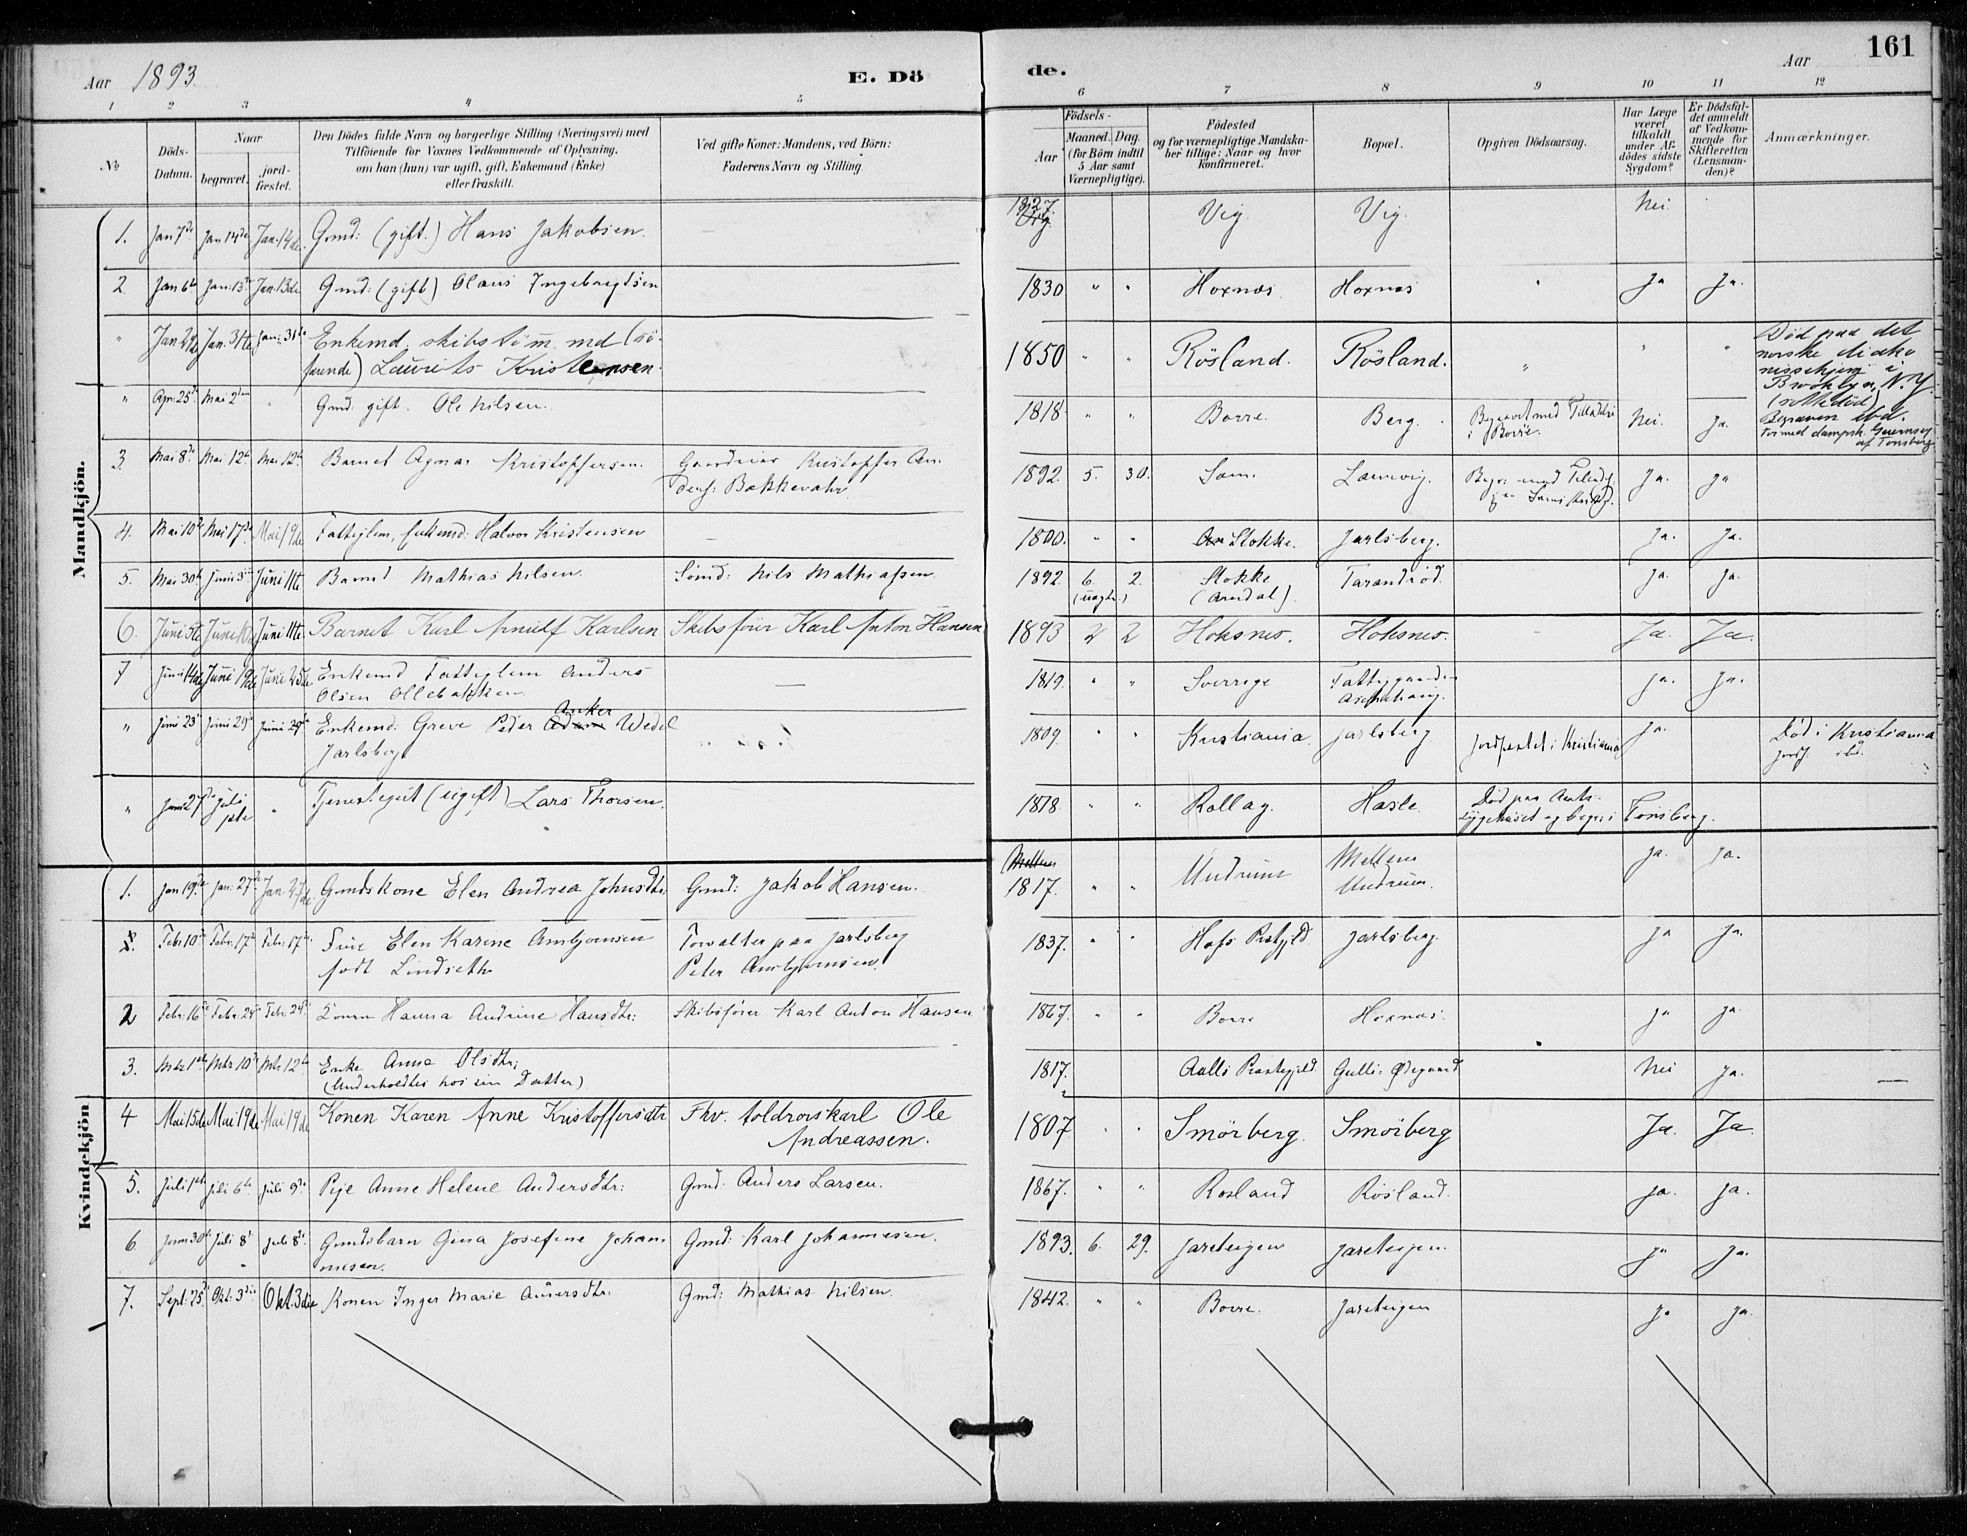 161
Aar 1893. E. Dö de. Aar
1 2 3 4 5 6 7 8 9 10 11 12
№
Döds-Datum.
Naar
begravet.
jord-fæstet.
Den Dödes fulde Navn og borgerlige Stilling (Næringsvei) med
Tilföiende for Voxnes Vedkommende af Oplysning,
om han (hun) var ugift, gift, Enkemand (Enke)
eller fraskilt.
Ved gifte Koner: Mandens, ved Börn:
Faderens Navn og Stilling.
Födsels-
Aar
Maaned. Dag.
(for Börn indtil
5 Aar samt
Værnepligtige).
Födested
og for værnepligtige Mandska-
ber tillige: Naar og hvor
konfirmeret.
Bopæl.
Opgiven Dödsaarsag.
Har Læge
været
tilkaldt
under Af-
dödes sidste
Sygdom?
Er Dödsfal-
det anmeldt
af Vedkom-
mende for
Skifteretten
(Lensman-
den)?
Anmærkninger.
Mandkjön.
1. Jan 7de Jan 14de Jan. 14de Gmd: (gift.) Hans Jakobsen. 1827 Vig. Vig. Nei
2 Jan 6te Jan: 13de Jan. 13de Gmd: (gift) Olaus Ingebrigtsen 1830 " " Hoxnæs. Hoxnæs " Ja Ja.
" Jan. 24de Jan. 31te Jan: 31te Enkemd. skibstöm̄md (sö-
farende) Laurits Kristensen. 1850 " " Rösland. Rösland. " " " Död paa det
norske diako
nissehjem i
Brooklyn, N.Y.
Begraven ibd.
" Apr: 25de Mai 2den Gmd: gift. Ole Nilsen. 1818 " " Borre. Berg. Begravet med Tilladelse
i Borre. Nei. Ja.
3. Mai 8de Mai 12te Mai 12te Barnet Agnar Kristoffersen. Gaardeier Kristoffer An-
ders: Bakkevahr 1892. 5. 30. Sem. Laurvig. Ja. Ja
4. Mai 10de Mai 17de Mai 19de Fattiglem, Enkemd: Halvor Kristensen – 1800. " " Stokke. Jarlsberg. Ja. Ja.
5. Mai 30te Juni 3die Juni 11te Barnet Mathias Nilsen. Sömd: Nils Mathiassen. 1892. 6. 2. Stokke
(Arendal). Tarandröd. Ja. Ja.
6. Juni 5te Juni Juni 11te Barnet Karl Arnulf Karlsen Skibsförer Karl Anton Hansen 1893 2 2 Hoksnes. Hoksnes. – Ja. Ja.
7 Juni 14de Juni 19de Juni 25de Enkemd Fattiglem Anders
Olsen Ollebakken – 1819. " " Sverrige Fattiggaarden
Ja. Ja.
" Juni 23de Juni 29de Juni 29de Enkemd: Greve Peder Anker Wedel
Jarlsberg 1809. " " Kristiania. Jarlsberg Jordfæstet i Kristiania Ja. Död i Kristiania
jordf. ibd.
" Juni 27de Juli 1ste " Tjenestegut (ugift) Lars Thorsen. 1878 " " Rollag. Hasle Död paa Amts-
sygehuset og begr: i Tönsberg.
Kvindekjön
1. Jan 19de Jan: 27de Jan. 27de Gmdskone Elen Andrea Johnsdtr: Gmd: Jakob Hansen. 1817. " " Undrum Mellem
Undrum. Ja. Ja.
Febr 10de Febr. 17de Febr: 17de Frue Elen Karine Arnbjørnsen
født Lindseth Forvalter paa Jarlsberg
Peter Arnbjørnsen. 1837. " " Hofs Prstgjld Jarlsberg. Ja Ja.
2 Febr. 16de Febr. 24de Febr. 24de Konen Hanna Andrine Hansdtr: Skibsfører Karl Anton Hansen 1867. " " Borre Hoxnæs. Ja Ja.
3. Mrz 1ste Mrz 10de Mrz 12te Enke Anna Olsdtr;
(Underholdtes hos sin Datter) 1817. Præstegjeld Gulli. Ødegaard Nei Ja. –
4 Mai 15de Mai 19de Mai 19de Konen Karen Anne Kristoffersdtr Fhv. toldrorskarl Ole
Andreassen. 1807 " " Smörberg. Smörberg Ja. Ja.
5. Juli 1ste Juli 6te Juli 9de Pige Anne Helene Andersdtr: Gmd: Anders Larsen. 1867. " " Rosland Rösland. Ja. Ja.
6. Juni 30te Juli 8de Juli 8de Gmdsbarn Gina Josefine Johan-
nesen. Gmd: Karl Johannesen. 1893. 6. 29. Jareteigen Jareteigen. Ja Ja.
7. Sept. 25de Okt: 3die Okt. 3die Konen Inger Marie Andersdtr: Gmd: Mathias Nilsen. 1842. " " Borre. Jareteigen Ja Ja.